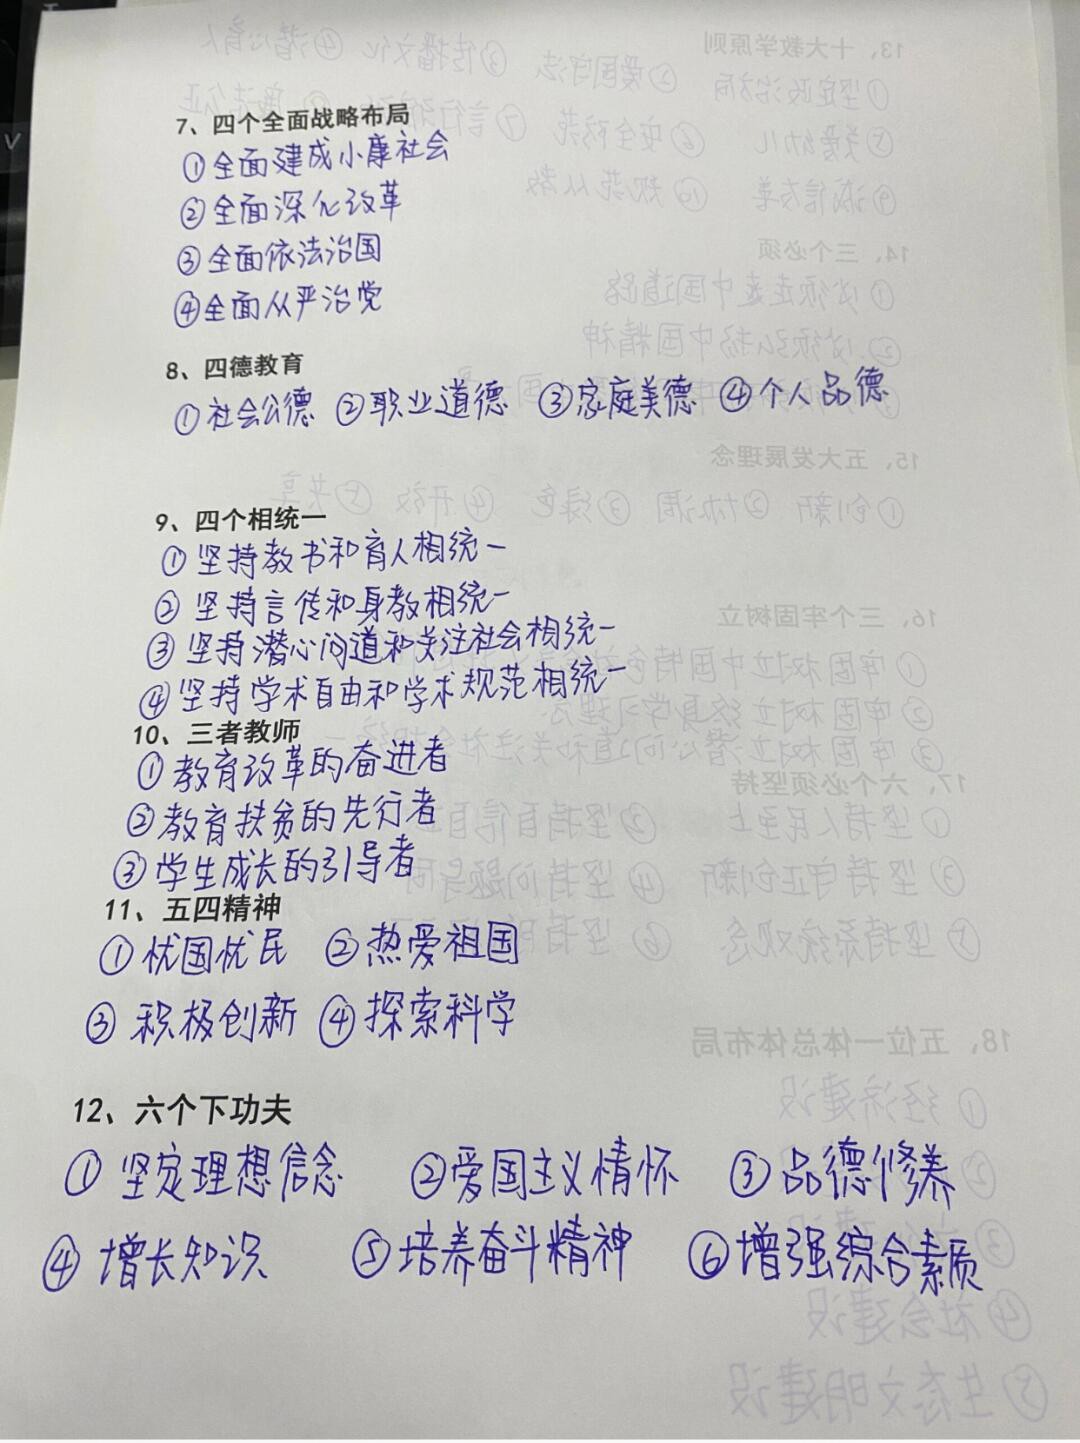 7、四个全面战略布局
①全面建成小康社会
②全面深化改革
③全面依法治国
④全面从严治党
8、四德教育
①社会公德 ②职业道德 ③家庭美德 ④个人品德
9、四个相统一
①坚持教书和育人相统一
②坚持言传和身教相统一
③坚持潜心问道和关注社会相统一
④坚持学术自由和学术规范相统一
10、三者教师
①教育改革的奋进者
②教育扶贫的先行者
③学生成长的引导者
11、五四精神
①忧国忧民 ②热爱祖国
③积极创新 ④探索科学
12、六个下功夫
①坚定理想信念 ②爱国主义情怀 ③品德修养
④增长知识 ⑤培养奋斗精神 ⑥增强综合素质